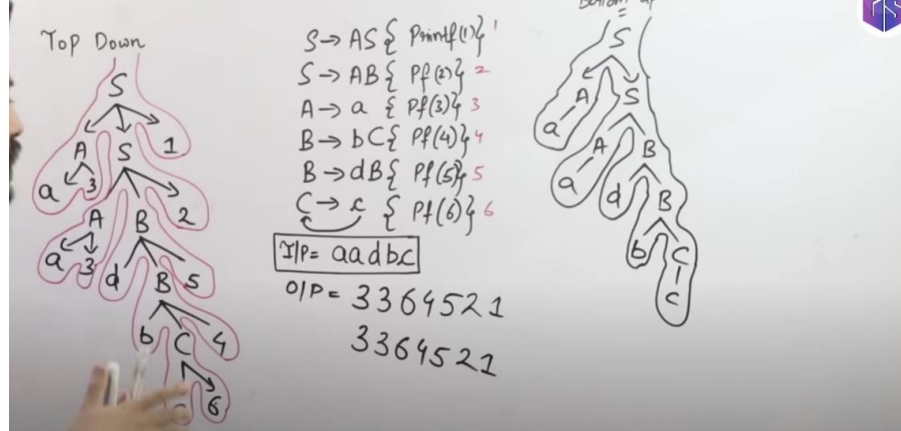 Top Down
S
A S 1
a 3 A B 2
a 3 d B 5
b C 4
6
S → AS { Printf(1)} 1
S → AB { Pf(2)} 2
A → a { Pf(3)} 3
B → bC { Pf(4)} 4
B → dB { Pf(5)} 5
C → c { Pf(6)} 6
I/P = aadbc
O/P = 3364521
3364521
S
A S
a A B
a d B
b C
c